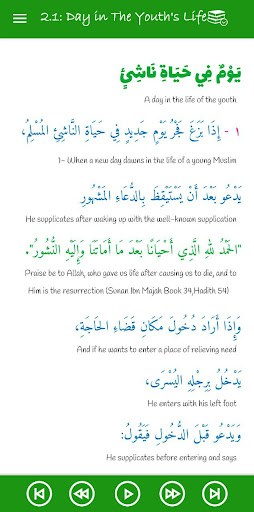 2.1: Day in The Youth's Life
يَوْمٌ فِي حَيَاةِ نَاشِئٍ
A day in the life of the youth
١ - إِذَا بَزَغَ فَجْرُ يَوْمٍ جَدِيدٍ فِي حَيَاةِ النَّاشِئِ الْمُسْلِمِ،
1- When a new day dawns in the life of a young Muslim
يَدْعُو بَعْدَ أَنْ يَسْتَيْقِظَ بِالدُّعَاءِ الْمَشْهُورِ
He supplicates after waking up with the well-known supplication
"الْحَمْدُ لِلهِ الَّذِي أَحْيَانَا بَعْدَ مَا أَمَاتَنَا وَإِلَيْهِ النُّشُورُ".
Praise be to Allah, who gave us life after causing us to die, and to
Him is the resurrection (Sunan Ibn Majah Book 34,Hadith 54)
وَإِذَا أَرَادَ دُخُولَ مَكَانِ قَضَاءِ الْحَاجَةِ،
And if he wants to enter a place of relieving need
يَدْخُلُ بِرِجْلِهِ الْيُسْرَى،
He enters with his left foot
وَيَدْعُو قَبْلَ الدُّخُولِ فَيَقُولُ:
He supplicates before entering and says